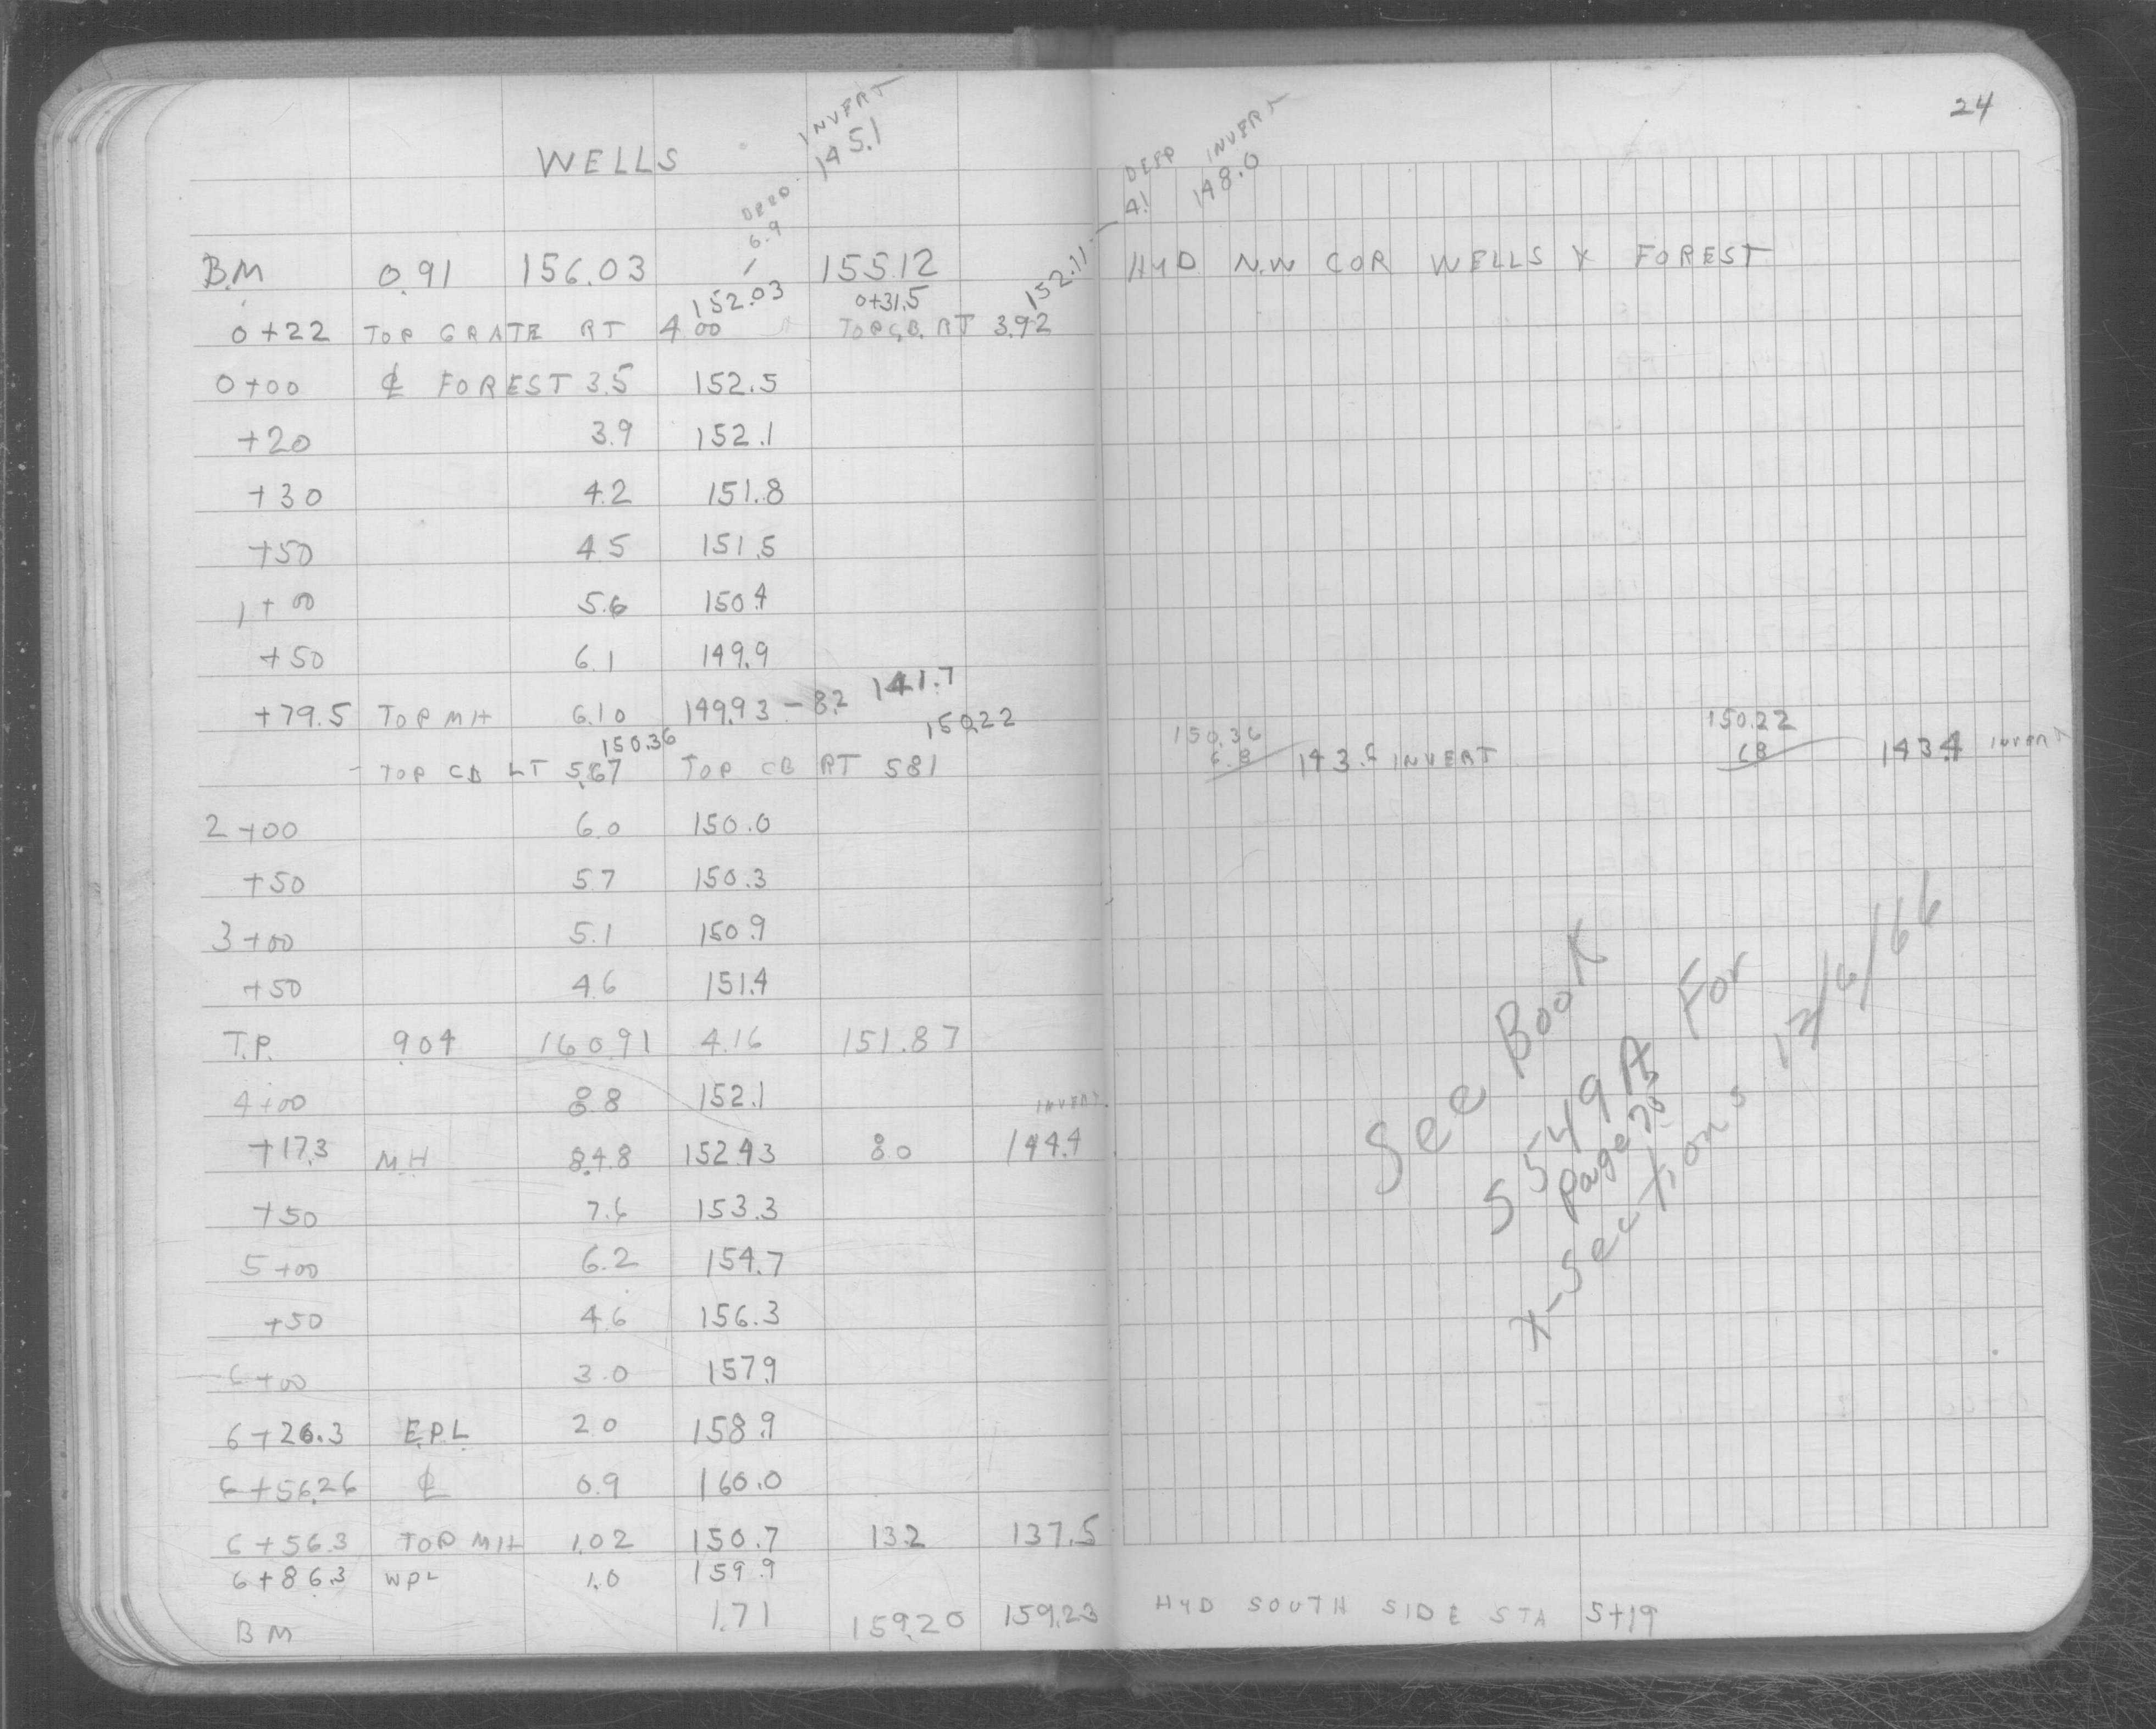 24
WELLS
INVERT
145.1
DEEP
6.9
DEEP INVERT
4.1 148.0
B.M 0.91 156.03 155.12 HYD N.W COR WELLS X FOREST
152.03 0+31.5 152.11
0+22 TOP GRATE RT 4.00 TOP C.B. RT 3.92
0+00 ℄ FOREST 3.5 152.5
+20 3.9 152.1
+30 4.2 151.8
+50 4.5 151.5
1+00 5.6 150.4
+50 6.1 149.9
+79.5 TOP MH 6.10 149.93 - 8.2 141.7
150.36 150.22 150.36 150.22
TOP CB LT 5.67 TOP CB RT 5.81 6.8 143.6 INVERT 6.8 143.4 INVERT
2+00 6.0 150.0
+50 5.7 150.3
3+00 5.1 150.9
+50 4.6 151.4
T.P. 9.04 160.91 4.16 151.87
4+00 8.8 152.1
INVERT
+17.3 M.H 8.48 152.43 8.0 144.4
+50 7.6 153.3
5+00 6.2 154.7
+50 4.6 156.3
6+00 3.0 157.9
6+26.3 E.P.L. 2.0 158.9
6+56.26 ℄ 0.9 160.0
6+56.3 TOP MH 1.02 150.7 13.2 137.5
6+86.3 WPL 1.0 159.9
BM 1.71 159.20 159.23 HYD SOUTH SIDE STA 5+19
See Book
5549A For
page 20
X-Sections 12/6/66